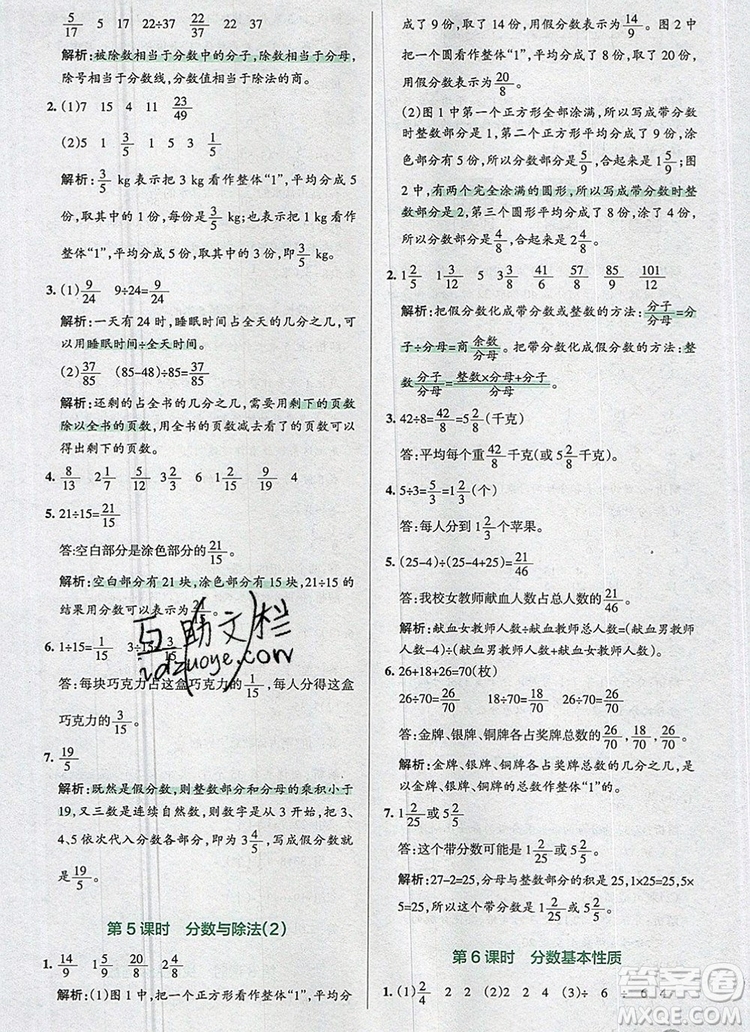 5/17 5 17 22÷37 22/37
解析:被除数相当于分数中的分子,除数相当于分母,
除号相当于分数线,分数值相当于除法的商。
2. (1)7 15 4 11 23/49
(2)5 1 3/5 1 5 3 1/5
解析:3/5 kg 是把 3 kg 看作整体“1”,平均分成 5
份,取其中的 1 份,每份是 3/5;把 1 kg 看作
整体“1”,平均分成 5 份,取其中的 3 份,即 3/5。
3. (1)9/24 9÷24=9/24
解析:一天有 24 时,睡眠时间占全天的几分之几,可
以用睡眠时间÷全天时间。
(2)37/85 (85-48)÷85=37/85
解析:还剩的占全书的几分之几,需要用剩下的页数
除以全书的页数,而剩下的页数不知道,所以可以
得出剩下的页数。
4. 8/13 2 1/7 3 3/4 6 1 9/19 4
5. 21÷15=21/15
答:空白部分是涂色部分的21/15。
解析:空白部分有 21 块,涂色部分有 15 块,21÷15 的
结果用分数可以表示为21/15。
6. 1÷15=1/15 3÷15=3/15
答:每块巧克力占这盒巧克力的1/15,每人分得这盒
巧克力的3/15。
7. 19/5
解析:既然是假分数,则整数部分和分母的乘积小于
19,又三数是连续自然数,则从 3 开始,把 3、
4、5依次代入分数各部分,即为 3 4/5,写成假分数就
是19/5。
第 5 课时 分数与除法(2)
1. 14/9 1 5/9 20/8 2 4/8
解析:(1)图 1 中,把一个正方形看作整体“1”,平均分
成了 9 份,取了 14 份,用假分数表示为14/9。图 2 中
把一个圆看作整体“1”,平均分成了 8 份,取了 20 份,
用假分数表示为20/8。
(2)图 1 中第一个正方形全部涂满,所以写成带分数
时整数部分是 1,第二个正方形平均分成了 9 份,涂
色部分有 5 份,分数部分是5/9,合起来是 1 5/9;图
2 中,有两个完全涂满的圆形,所以写成带分数时整
数部分是 2,第三个圆形平均分成了 8 份,涂了 4 份,
分数部分是4/8,合起来是 2 4/8。
2. 1 2/5 1 3/12 5 3/8 41/6 57/8 85/9 101/12
解析:把假分数化成带分数或整数的方法:分子/分母=分
子÷分母=商 余数/分母。把带分数化成假分数的方法:整
数 分子/分母=整数×分母+分子/分母。
3. 42÷8=42/8=5 2/8(千克)
答:平均每个重42/8千克(或 5 2/8千克)。
4. 5÷3=5/3=1 2/3(个)
答:每人分到 1 2/3个苹果。
5. (25-4)÷(25+21)=21/46
答:我校女教师献血人数占总人数的21/46。
解析:献血女教师人数÷献血教师总人数=(献血男教师
人数-4)÷(献血男教师人数+献血女教师人数)。
6. 26+18+26=70(枚)
26÷70=26/70 18÷70=18/70 26÷70=26/70
答:金牌、银牌、铜牌各占奖牌总数的26/70,18/70,26/70。
解析:金牌、银牌、铜牌各占奖牌总数的几分之几,就
是以金牌、银牌、铜牌的总数作整体“1”的。
7. 1 2/25或 5 2/5
答:这个带分数可能是 1 2/25或 5 2/5。
解析:27-2=25,分母与整数部分的积是 25,1×25或5×
5=25,所以这个带分数可能是 1 2/25或 5 2/5。
第 6 课时 分数基本性质
1. (1)2/4 2 2 (2)2 2 4 (3)÷ 6
互助文栏
idzuoye.com
答案圈